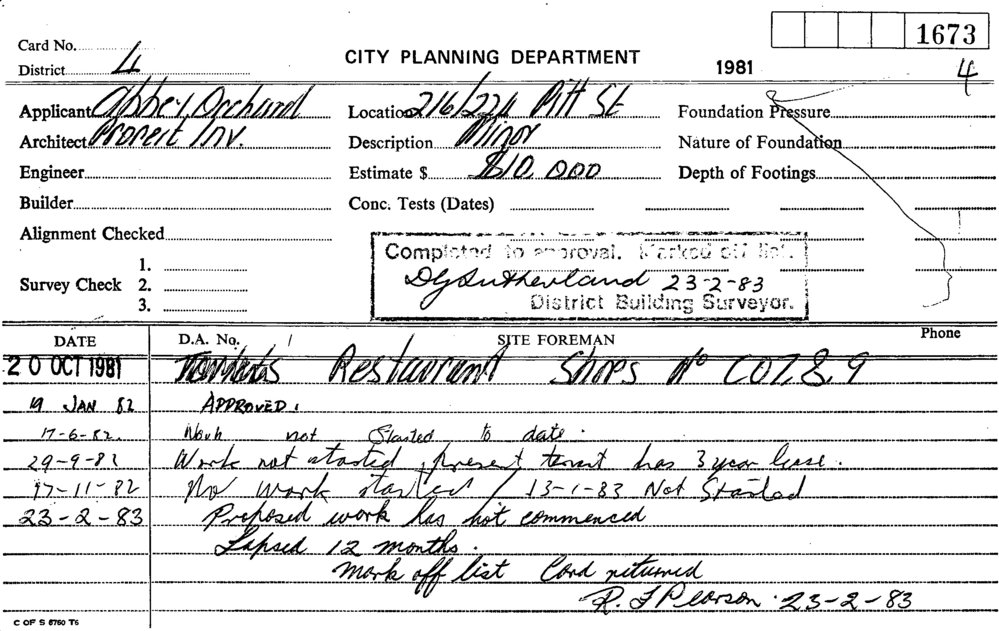 1673
Card No.
District 4
CITY PLANNING DEPARTMENT
1981
4
Applicant Abbey Orchard
Location 216/224 Pitt St
Foundation Pressure
Architect Inv.
Description Minor
Nature of Foundation
Engineer
Estimate $ $10,000
Depth of Footings
Builder
Conc. Tests (Dates)
Alignment Checked
Completed to approval. Marked off list.
Survey Check 1. 2. 3.
DG Sutherland 23-2-83
District Building Surveyor.
DATE D.A. No. SITE FOREMAN Phone
20 OCT 1981 Restaurant Shops No CO7,8,9
19 JAN 82 APPROVED.
17-6-82. Work not Started to date.
29-9-82 Work not started, present tenant has 3 year lease.
17-11-82 No work started / 13-1-83 Not Started
23-2-83 Proposed work has not commenced
Lapsed 12 months.
Mark off list Card returned
R. F Pearson. 23-2-83
C OF S 8760 T6